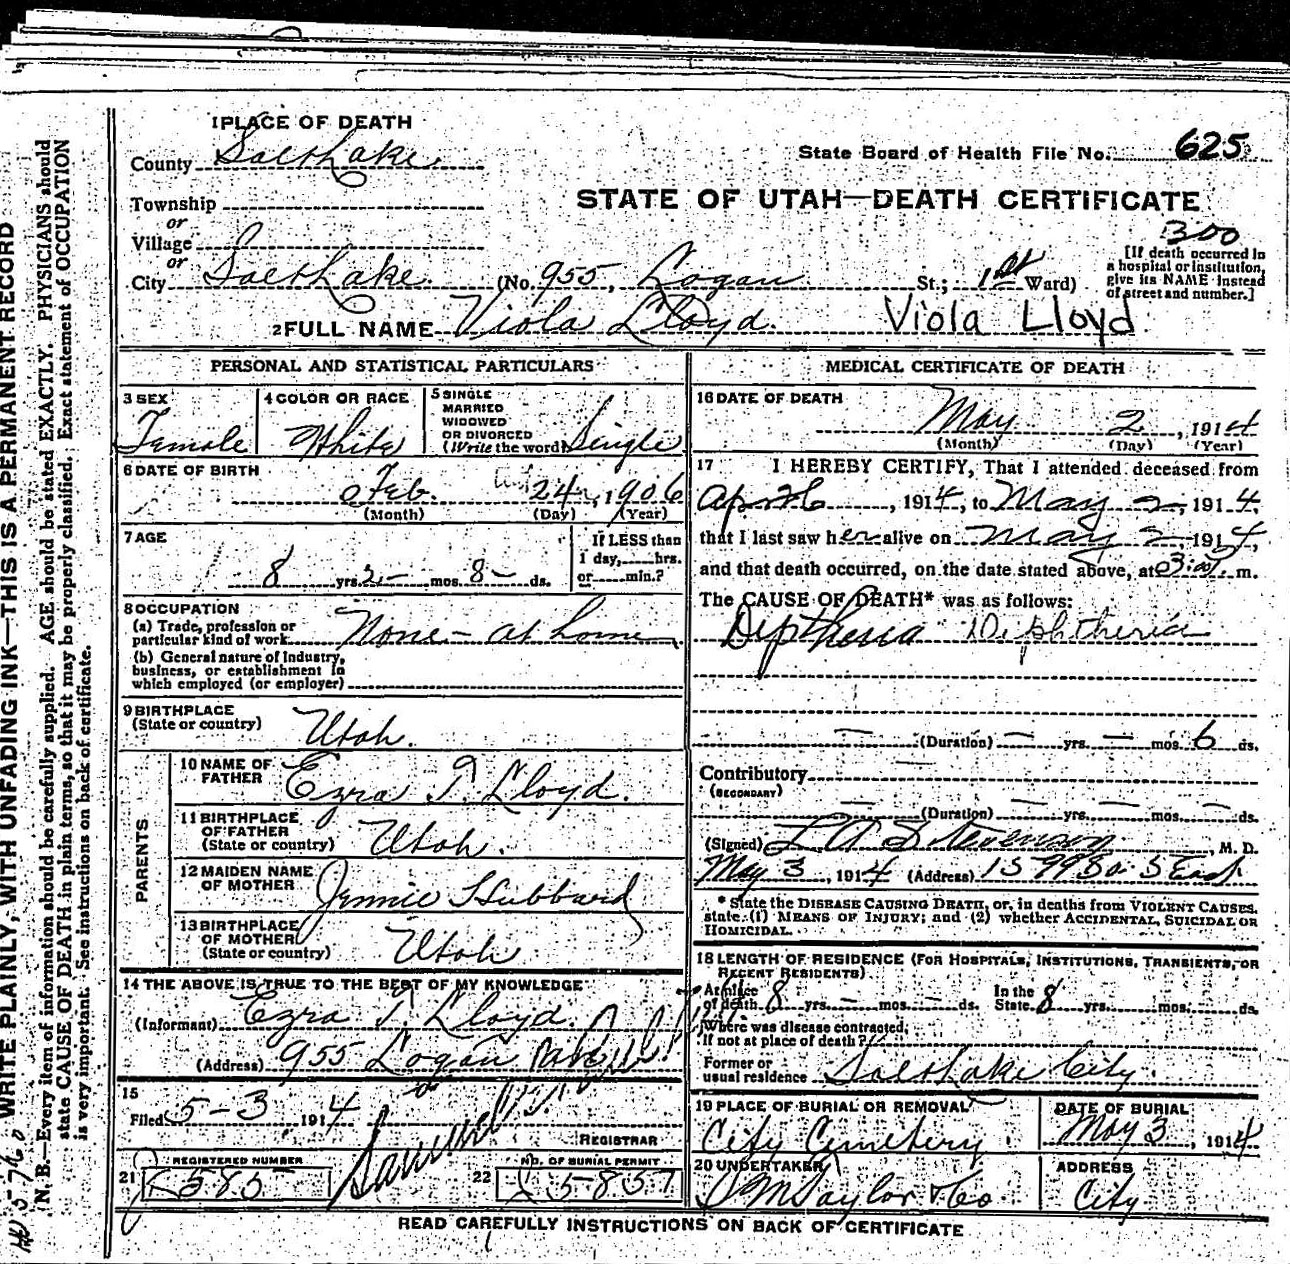 1 PLACE OF DEATH
County Salt Lake
State Board of Health File No. 625
Township
or
Village
or
STATE OF UTAH—DEATH CERTIFICATE
300
City Salt Lake (No. 955, Logan St.; 1st Ward)
[If death occurred in
a hospital or institution,
give its NAME instead
of street and number.]
2 FULL NAME Viola Lloyd. Viola Lloyd
PERSONAL AND STATISTICAL PARTICULARS
3 SEX
Female
4 COLOR OR RACE
White
5 SINGLE
MARRIED
WIDOWED
OR DIVORCED
(Write the word) Single
6 DATE OF BIRTH
Feb. 24, 1906
(Month) (Day) (Year)
7 AGE
8 yrs. 2 mos. 8 ds.
If LESS than
1 day, hrs.
or min.?
8 OCCUPATION
(a) Trade, profession or
particular kind of work None - at home
(b) General nature of industry,
business, or establishment in
which employed (or employer)
9 BIRTHPLACE
(State or country) Utah.
PARENTS
10 NAME OF
FATHER Ezra T. Lloyd.
11 BIRTHPLACE
OF FATHER
(State or country) Utah.
12 MAIDEN NAME
OF MOTHER Jennie Hubbard
13 BIRTHPLACE
OF MOTHER
(State or country) Utah
14 THE ABOVE IS TRUE TO THE BEST OF MY KNOWLEDGE
(Informant) Ezra T. Lloyd.
(Address) 955 Logan
15
Filed 5-3 1914
REGISTRAR
21 REGISTERED NUMBER
22 NO. OF BURIAL PERMIT
MEDICAL CERTIFICATE OF DEATH
16 DATE OF DEATH
May 2, 1914
(Month) (Day) (Year)
17 I HEREBY CERTIFY, That I attended deceased from
Apr 26, 1914, to May 2, 1914,
that I last saw her alive on May 2 1914,
and that death occurred, on the date stated above, at 3:00 m.
The CAUSE OF DEATH* was as follows:
Diptheria Diphtheria
— (Duration) — yrs. — mos. 6 ds.
Contributory
(SECONDARY)
— (Duration) — yrs. — mos. — ds.
(Signed) L A Stevenson, M. D.
May 3, 1914 (Address) 1599 So. 5 East
* State the DISEASE CAUSING DEATH, or, in deaths from VIOLENT CAUSES,
state (1) MEANS OF INJURY; and (2) whether ACCIDENTAL, SUICIDAL OR
HOMICIDAL.
18 LENGTH OF RESIDENCE (FOR HOSPITALS, INSTITUTIONS, TRANSIENTS, OR
RECENT RESIDENTS)
At place
of death 8 yrs. — mos. — ds. In the
State 8 yrs. mos. ds.
Where was disease contracted,
if not at place of death?
Former or
usual residence Salt Lake City.
19 PLACE OF BURIAL OR REMOVAL
City Cemetery
DATE OF BURIAL
May 3, 1914
20 UNDERTAKER
S M Taylor & Co
ADDRESS
City
READ CAREFULLY INSTRUCTIONS ON BACK OF CERTIFICATE
WRITE PLAINLY, WITH UNFADING INK—THIS IS A PERMANENT RECORD
(N. B.—Every item of information should be carefully supplied. AGE should be stated EXACTLY. PHYSICIANS should
state CAUSE OF DEATH in plain terms, so that it may be properly classified. Exact statement of OCCUPATION
is very important. See instructions on back of certificate.